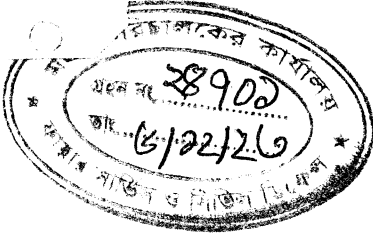 পরিচালকের কার্যালয়
গ্রহন নং ২৪৭০১
তাং ৫/১২/২৩
ফায়ার সার্ভিস ও সিভিল ডিফেন্স